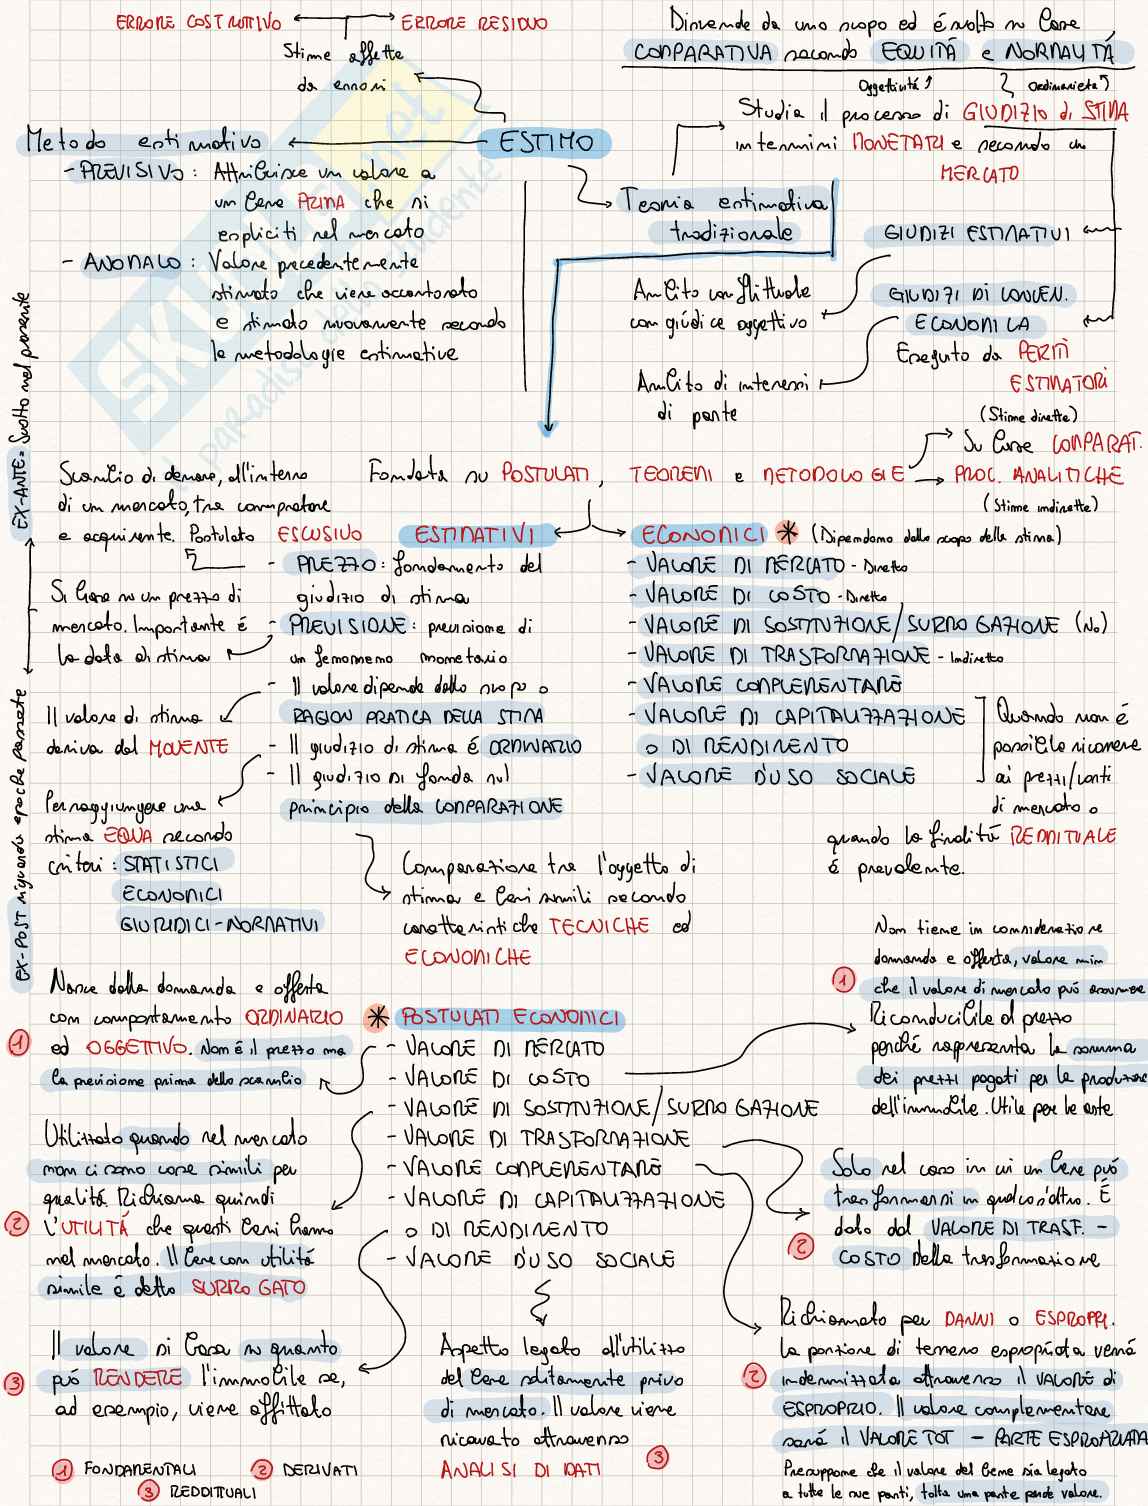 ERRORE COSTRUTTIVO
ERRORE RESIDUO
Stime affette
da errori
Dipende da uno scopo ed è svolto su base
COMPARATIVA secondo EQUITÁ e NORMALITÁ
Oggettività
Ordinarietà
ESTIMO
Metodo estimativo
- PREVISIVO: Attribuisce un valore a
un bene PRIMA che si
espliciti nel mercato
- ANOMALO: Valore precedentemente
stimato che viene accantonato
e stimato nuovamente secondo
le metodologie estimative
Teoria estimativa
tradizionale
Studia il processo di GIUDIZIO di STIMA
in termini MONETARI e secondo un
MERCATO
GIUDIZI ESTIMATIVI
Ambito conflittuale
con giúdice oggettivo
GIUDIZI DI CONVEN.
ECONOMICA
Eseguito da PERITI
ESTIMATORI
Ambito di interessi
di parte
(Stime dirette)
Su base COMPARAT.
PROC. ANALITICHE
(Stime indirette)
Fondata su POSTULATI, TEOREMI e METODOLOGIE
EX-ANTE= Svolto nel presente
EX-POST riguarda epoche passate
Scambio di denaro, all'interno
di un mercato, tra compratore
e acquirente. Postulato ESCLUSIVO
Si basa su un prezzo di
mercato. Importante é
la data di stima
Il valore di stima
deriva dal MOVENTE
Per raggiungere una
stima EQUA secondo
criteri: STATISTICI
ECONOMICI
GIURIDICI-NORMATIVI
ESTIMATIVI
- PREZZO: fondamento del
giudizio di stima
- PREVISIONE: previsione di
un fenomeno monetario
- Il valore dipende dallo scopo o
RAGION PRATICA DELLA STIMA
- Il giudizio di stima é ORDINARIO
- Il giudizio si fonda sul
principio della COMPARAZIONE
Comparazione tra l'oggetto di
stima e beni simili secondo
caratteristiche TECNICHE ed
ECONOMICHE
ECONOMICI * (Dipendono dallo scopo della stima)
- VALORE DI MERCATO - Diretto
- VALORE DI COSTO - Diretto
- VALORE DI SOSTITUZIONE/SURROGAZIONE (No)
- VALORE DI TRASFORMAZIONE - Indiretto
- VALORE COMPLEMENTARE
- VALORE DI CAPITALIZZAZIONE
O DI RENDIMENTO
- VALORE D'USO SOCIALE
Quando non é
possibile ricorrere
ai prezzi/conti
di mercato o
quando la finalitá REDDITUALE
é prevalente.
* POSTULATI ECONOMICI
- VALORE DI MERCATO
- VALORE DI COSTO
- VALORE DI SOSTITUZIONE/SURROGAZIONE
- VALORE DI TRASFORMAZIONE
- VALORE COMPLEMENTARE
- VALORE DI CAPITALIZZAZIONE
O DI RENDIMENTO
- VALORE D'USO SOCIALE
Nasce dalla domanda e offerta
con comportamento ORDINARIO
1 ed OGGETTIVO. Non é il prezzo ma
la previsione prima dello scambio
Utilizzato quando nel mercato
non ci sono cose simili per
qualitá. Richiama quindi
2 l'UTILITÁ che questi beni hanno
nel mercato. Il bene con utilitá
simile é detto SURROGATO
Il valore si basa su quanto
3 può RENDERE l'immobile se,
ad esempio, viene affittato
Aspetto legato all'utilizzo
del bene solitamente privo
di mercato. Il valore viene
ricavato attraverso
ANALISI DI DATI
3
Non tiene in considerazione
domanda e offerta, valore min
1 che il valore di mercato può assumere
Riconducibile al prezzo
perché rappresenta la somma
dei prezzi pagati per la produzione
dell'immobile. Utile per le aste
Solo nel caso in cui un bene puó
trasformarsi in qualcos'altro. É
dato dal VALORE DI TRASF. -
2 COSTO della trasformazione
Richiamato per DANNI o ESPROPRI.
La porzione di terreno espropriata verrá
2 indennizzata attraverso il VALORE di
ESPROPRIO. Il valore complementare
sará il VALORE TOT - PARTE ESPROPRIATA
Presuppone che il valore del bene sia legato
a tutte le sue parti, tolta una parte perde valore.
1 FONDAMENTALI 2 DERIVATI
3 REDDITUALI